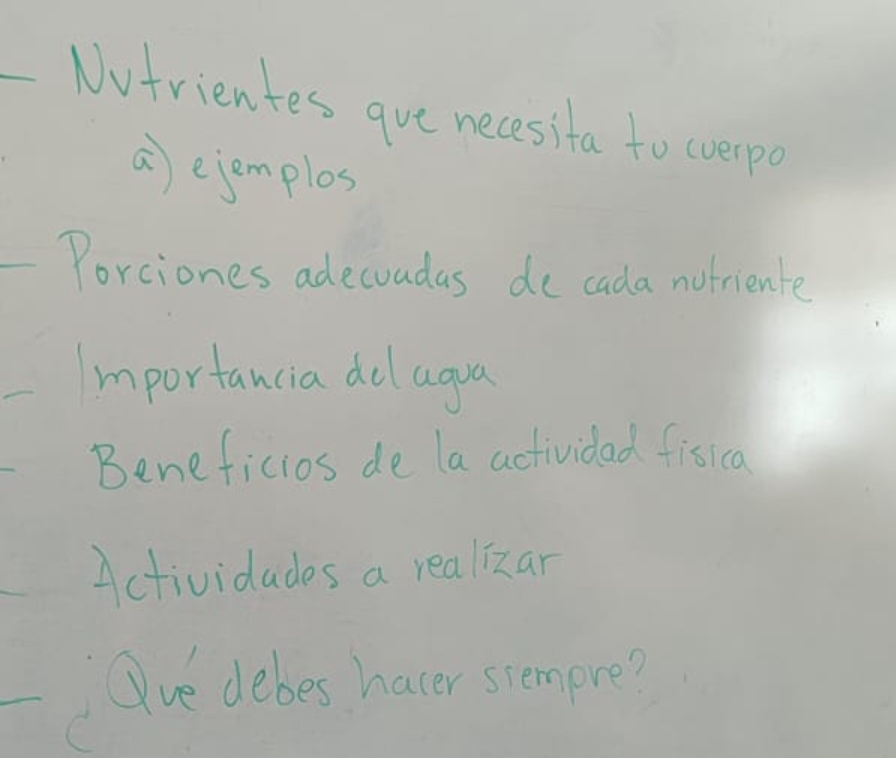 - Nutrientes que necesita tu cuerpo
a) ejemplos
- Porciones adecuadas de cada nutriente
- Importancia del agua
- Beneficios de la actividad fisica
- Actividades a realizar
- ¿Qué debes hacer siempre?